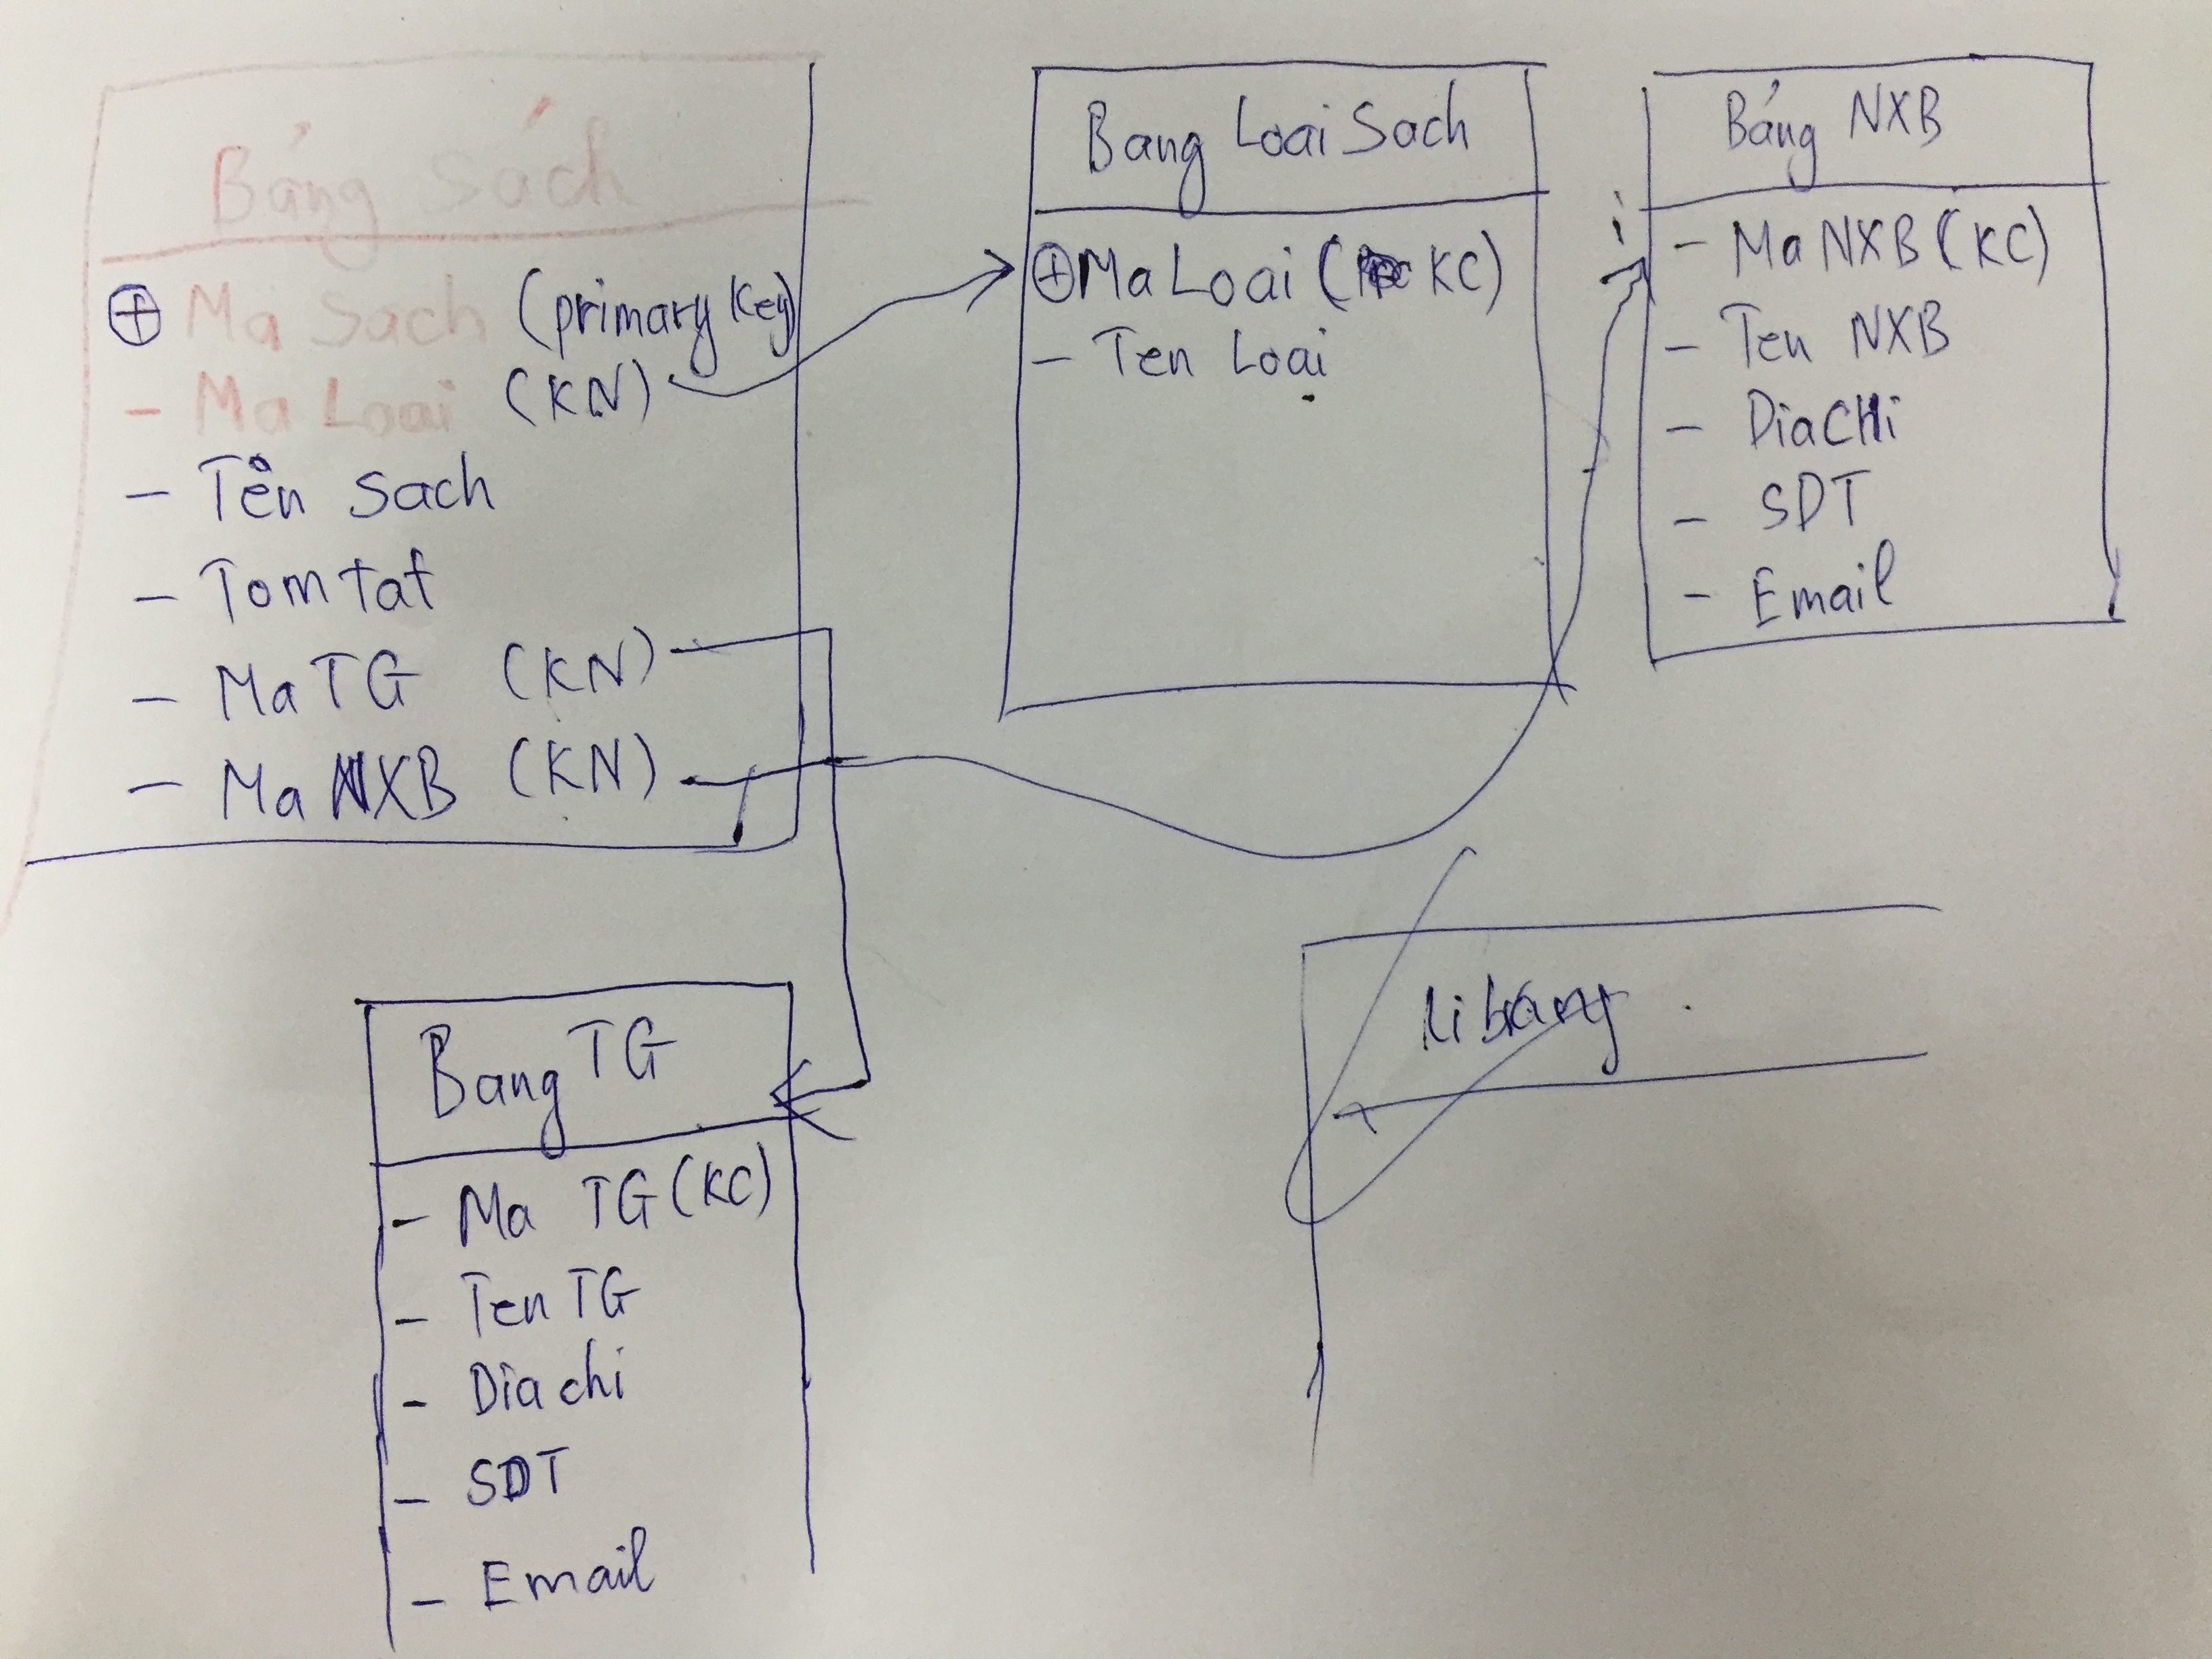 Bảng Sách
⊕ Ma Sach (primary key)
- Ma Loai (KN)
- Tên sach
- Tom tat
- Ma TG (KN)
- Ma NXB (KN)
Bang Loai Sach
⊕ Ma Loai (KC)
- Ten Loại
Bảng NXB
- Ma NXB (KC)
- Ten NXB
- DiaCHi
- SDT
- Email
Bang TG
- Ma TG (KC)
- Ten TG
- Dia chi
- SDT
- Email